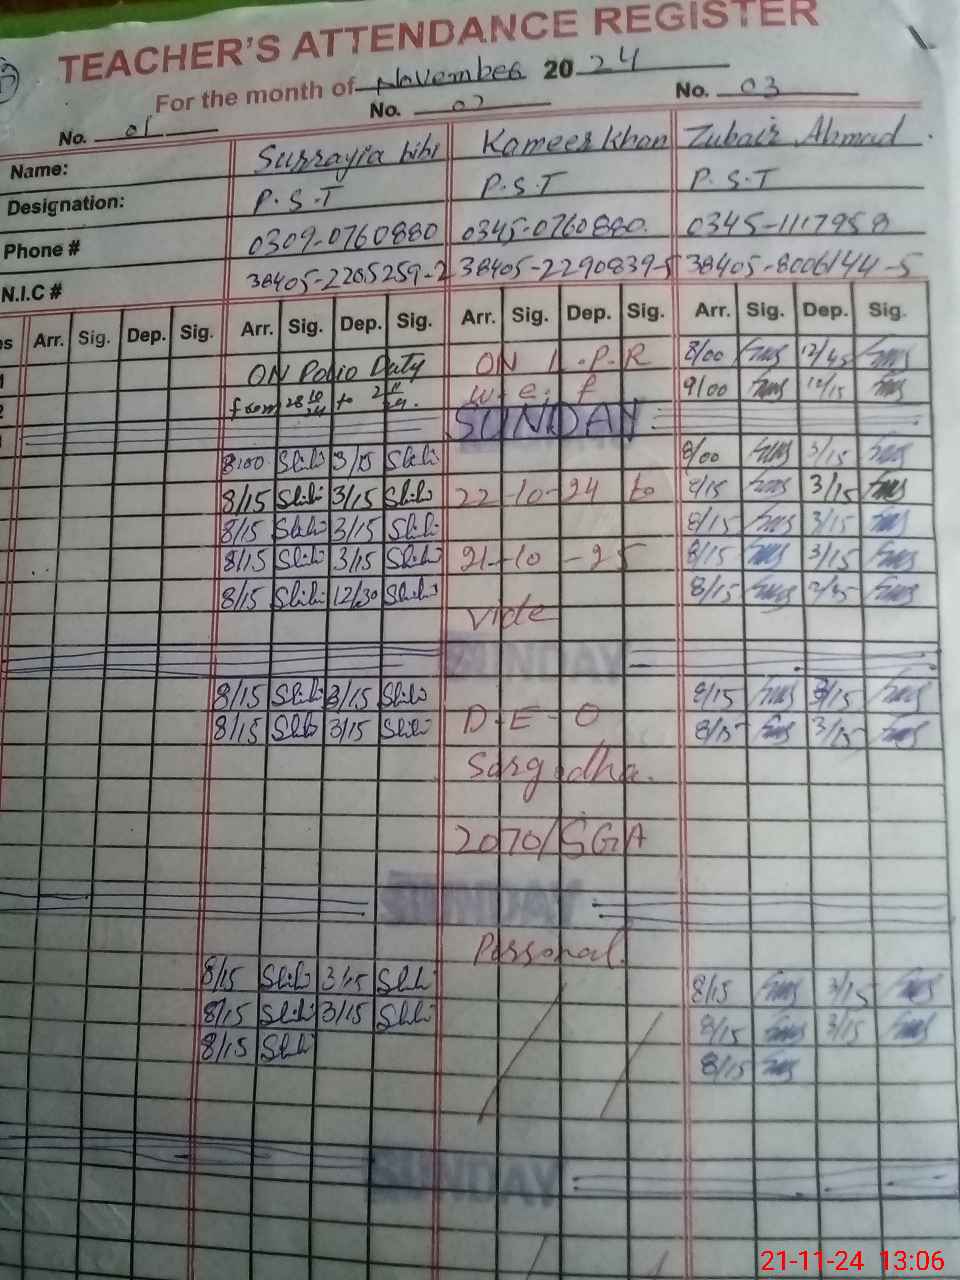 TEACHER'S ATTENDANCE REGISTER
For the month of November 20 24
No. 01 No. 02 No. 03
Name: Surrayia bibi Kameer khan Zubair Ahmad.
Designation: P.S.T P.S.T P.S.T
Phone # 0309-0760880 0345-0760880. 0345-1117958
N.I.C # 38405-2205259-2 38405-2290839-5 38405-8006144-5
es Arr. Sig. Dep. Sig. Arr. Sig. Dep. Sig. Arr. Sig. Dep. Sig. Arr. Sig. Dep. Sig.
1 ON Polio Duty ON L.P.R 8/00 12/45
2 from to w.e.f 9/00 12/15
SUNDAY
8:00 3/15 8/00 3/15
8/15 3/15 22-10-24 to 8/15 3/15
8/15 3/15 8/15 3/15
8/15 3/15 21-10-25 8/15 3/15
8/15 12/30 8/15
vide
SUNDAY
8/15 3/15 8/15 3/15
8/15 3/15 D-E-O 8/15 3/15
Sargodha.
2070/SGA
SUNDAY
Personal.
8/15 3/15 8/15 3/15
8/15 3/15 8/15 3/15
8/15 8/15
SUNDAY
21-11-24 13:06